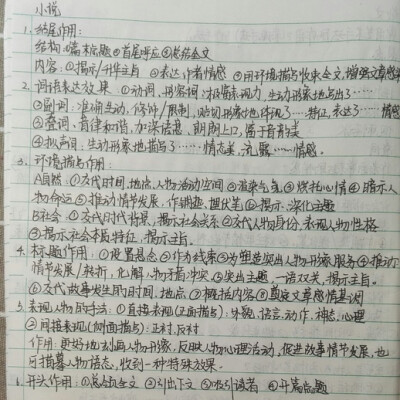 小说
1.结尾作用:
结构:①篇末点题②首尾呼应③总结全文
内容:①揭示/升华主旨 ②表达作者情感 ③用环境描写收束全文,增强文章
2.词语表达效果 ①动词、形容词:极富表现力,生动形象地写出了……
②副词:准确生动,修饰/限制,贴切形象地体现了……特征,表达了……情感
③叠词:音律和谐,加深语意,朗朗上口,富于音韵美
④拟声词:生动形象地描写了……情态美,流露……情感。
3.环境描写作用:
A自然:①交代时间,地点,人物活动空间②渲染气氛③烘托心情④暗示人
物命运⑤推动情节发展,作铺垫,埋伏笔⑥揭示、深化主题
B社会:①交代时代背景,揭示社会关系②交代人物身份,表现人物性格
③揭示社会本质特征,揭示主旨。
4.标题作用:①设置悬念②作为线索③为塑造突出人物形象服务④推动
情节发展/转折,化解人物矛盾冲突⑤突出主题,一语双关,揭示主旨。
⑥交代故事发生的时间,地点⑦概括内容⑧奠定文章感情基调
5.表现人物的手法:①直接表现(正面描写):外貌,语言,动作,神态,心理
②间接表现(侧面描写):正衬,反衬
作用:更好地刻画人物形象,反映人物心理活动,促进故事情节发展,也
可描摹人物语态,收到一种特殊效果。
1.开头作用:①总领全文②引出下文③吸引读者④开篇点题